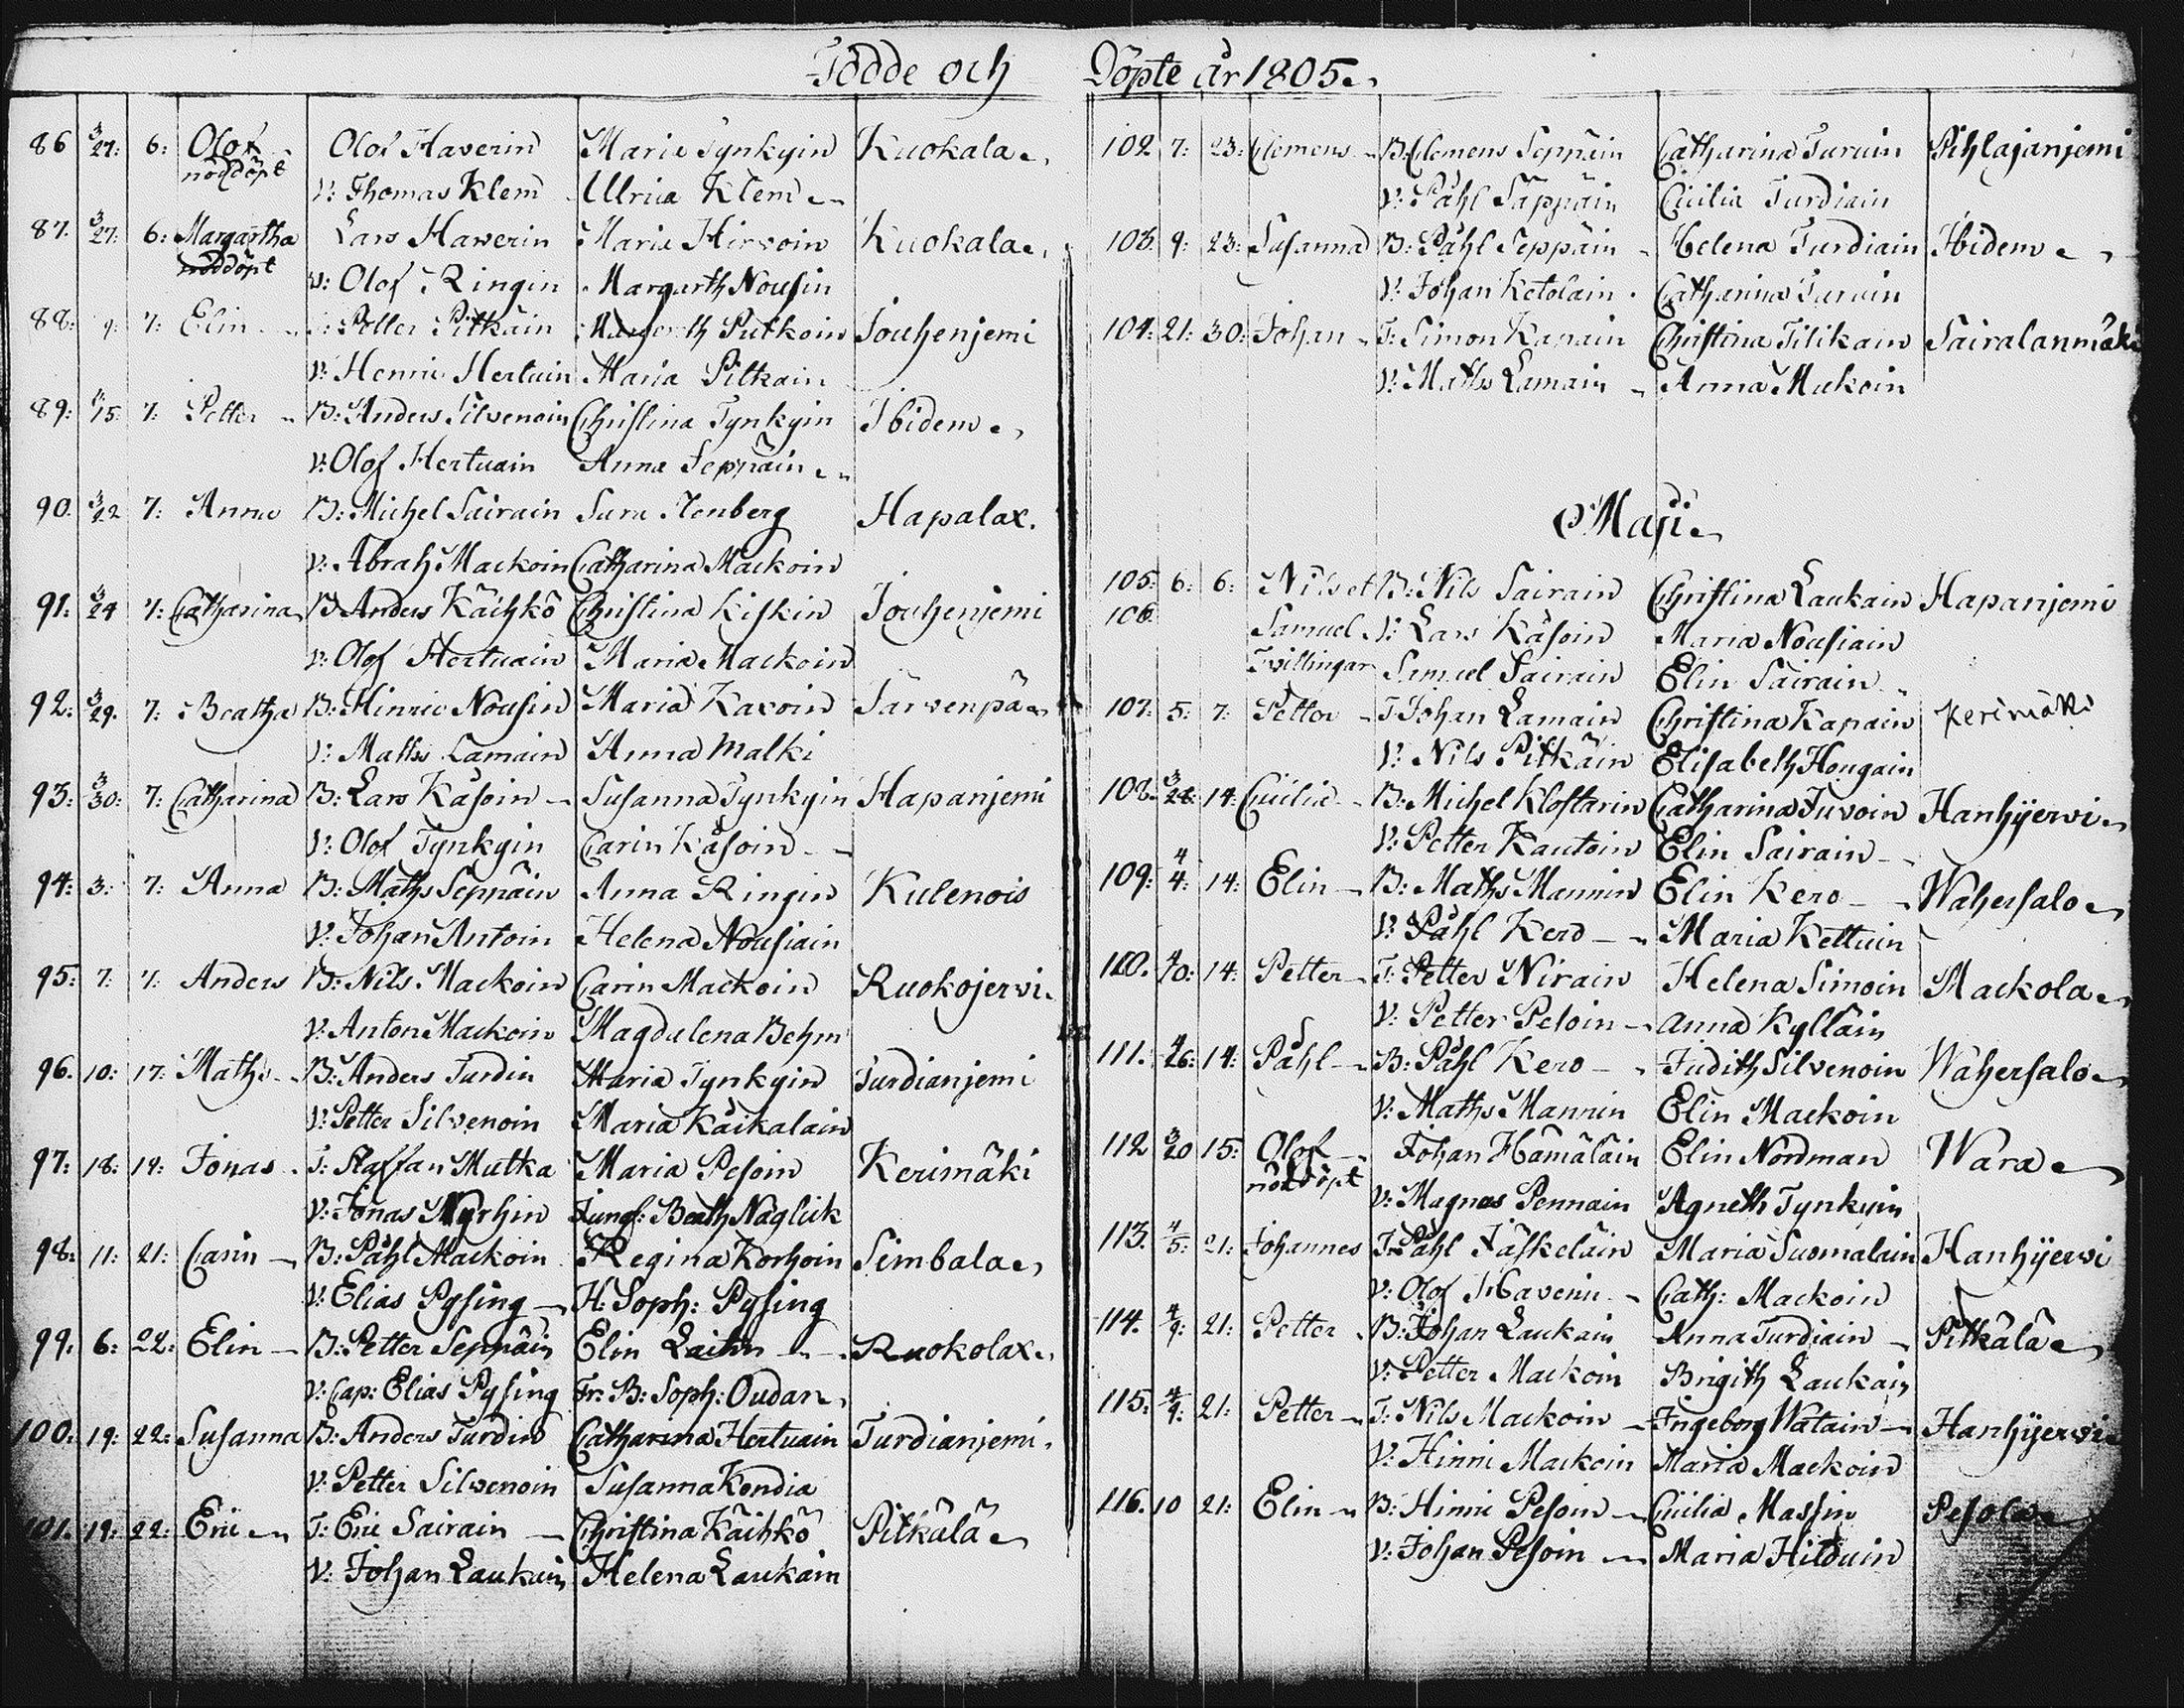 Födde och Döpte år 1805
86 3/27: 6: Olof Olof Haverin Maria Tynkyin Kuokala
nöddöpt V: Thomas Klem Ulrica Klem
87. 3/27: 6: Margartha Lars Haverin Maria Hirvoin Kuokala
nöddöpt V: Olof Ringin Margarth Nousin
88: 7: Elin Petter Pitkäin Margarth Putkoin Jouhenjemi
V: Henric Hertuin Maria Pitkain
89: 15: 7: Petter B: Anders Silvenoin Christina Tynkyin Ibidem
V: Olof Hertuain Anna Seppäin
90. 3/22 7: Anna B: Michel Sairain Sara Stenberg Hapalax.
V: Abrah Mackoin Catharina Mackoin
91: 3/24 7: Catharina B: Anders Käihkö Christina Kiskin Jouhenjemi
V: Olof Hertuain Maria Mackoin
92: 3/29. 7: Beatha B: Hinric Nousin Maria Kavoin Järvenpä
V: Maths Lamain Anna Malki
93: 3/30: 7: Catharina B: Lars Käsoin Susanna Tynkyin Hapanjemi
V: Olof Tynkyin Carin Käsoin
94: 3: 7: Anna B: Maths Seppäin Anna Ringin Kulenois
V: Johan Antoin Helena Nousiain
95: 7: 7: Anders B: Nils Mackoin Carin Mackoin Ruokojervi
V: Anton Mackoin Magdalena Behm
96. 10: 17: Maths B: Anders Turdin Maria Tynkyin Turdianjemi
V: Petter Silvenoin Maria Käikalain
97: 18: 19: Jonas T: Staffan Mutka Maria Pesoin Kerimäki
V: Jonas Nyrhin Jungf: Beath Näglick
98: 11: 21: Carin B: Påhl Mackoin Regina Korhoin Simbala
V: Elias Pysing H: Soph: Pysing
99: 6: 22: Elin B: Petter Seppäin Elin Laitin Ruokolax
V: Cap: Elias Pysing Fr: B: Soph: Oudar
100: 19: 22: Susanna B: Anders Turdin Catharina Hertuain Turdianjemi
V: Petter Silvenoin Susanna Kondia
101. 19: 22: Eric T: Eric Sairain Christina Käihkö Pitkälä
V: Johan Laukain Helena Laukain
102 7: 23: Clemens B: Clemens Seppäin Catharina Turuin Pihlajanjemi
V: Påhl Säppäin Cicilia Turdiain
103. 9: 23: Susanna B: Påhl Seppäin Helena Turdiain Ibidem
V: Johan Ketolain Catharina Turuin
104: 21: 30: Johan T: Simon Kapain Christina Tilikain Sairalanmäki
V: Maths Lamain Anna Mackoin
Maji
105: 6: 6: Nils et B: Nils Sairain Christina Laukain Hapanjemi
106: Samuel V: Lars Käsoin Maria Nousiain
Tvillingar Samuel Sairain Elin Sairain
107: 5: 7: Petter T: Johan Lamain Christina Kapain Kerimäki
V: Nils Pitkäin Elisabeth Hongain
108. 3/28: 14: Cicilia B: Michel Klostarin Catharina Juvoin Hanhijervi
V: Petter Kautoin Elin Sairain
109: 4/4: 14: Elin B: Maths Mannin Elin Kero Wahersalo
V: Påhl Kero Maria Kettuin
110. 4/10: 14: Petter T: Petter Nirain Helena Simoin Mackola
V: Petter Pesoin Anna Kylläin
111. 4/26: 14: Påhl B: Påhl Kero Judith Silvenoin Wahersalo
V: Maths Mannin Elin Mackoin
112 3/20 15: Olof Johan Hämäläin Elin Nordman Wara
nöddöpt V: Magnus Pennain Agneth Tynkyin
113. 4/5: 21: Johannes T: Påhl Jäskeläin Maria Suomalain Hanhijervi
V: Olof Havenin Cath: Mackoin
114. 4/9: 21: Petter B: Johan Laukain Anna Turdiain Pitkälä
V: Petter Mackoin Brigith Laukain
115: 4/9: 21: Petter T: Nils Mackoin Ingeborg Watain Hanhijervi
V: Hinric Mackoin Maria Mackoin
116. 10 21: Elin B: Hinric Pesoin Cicilia Massin Pesola
V: Johan Pesoin Maria Hilduin